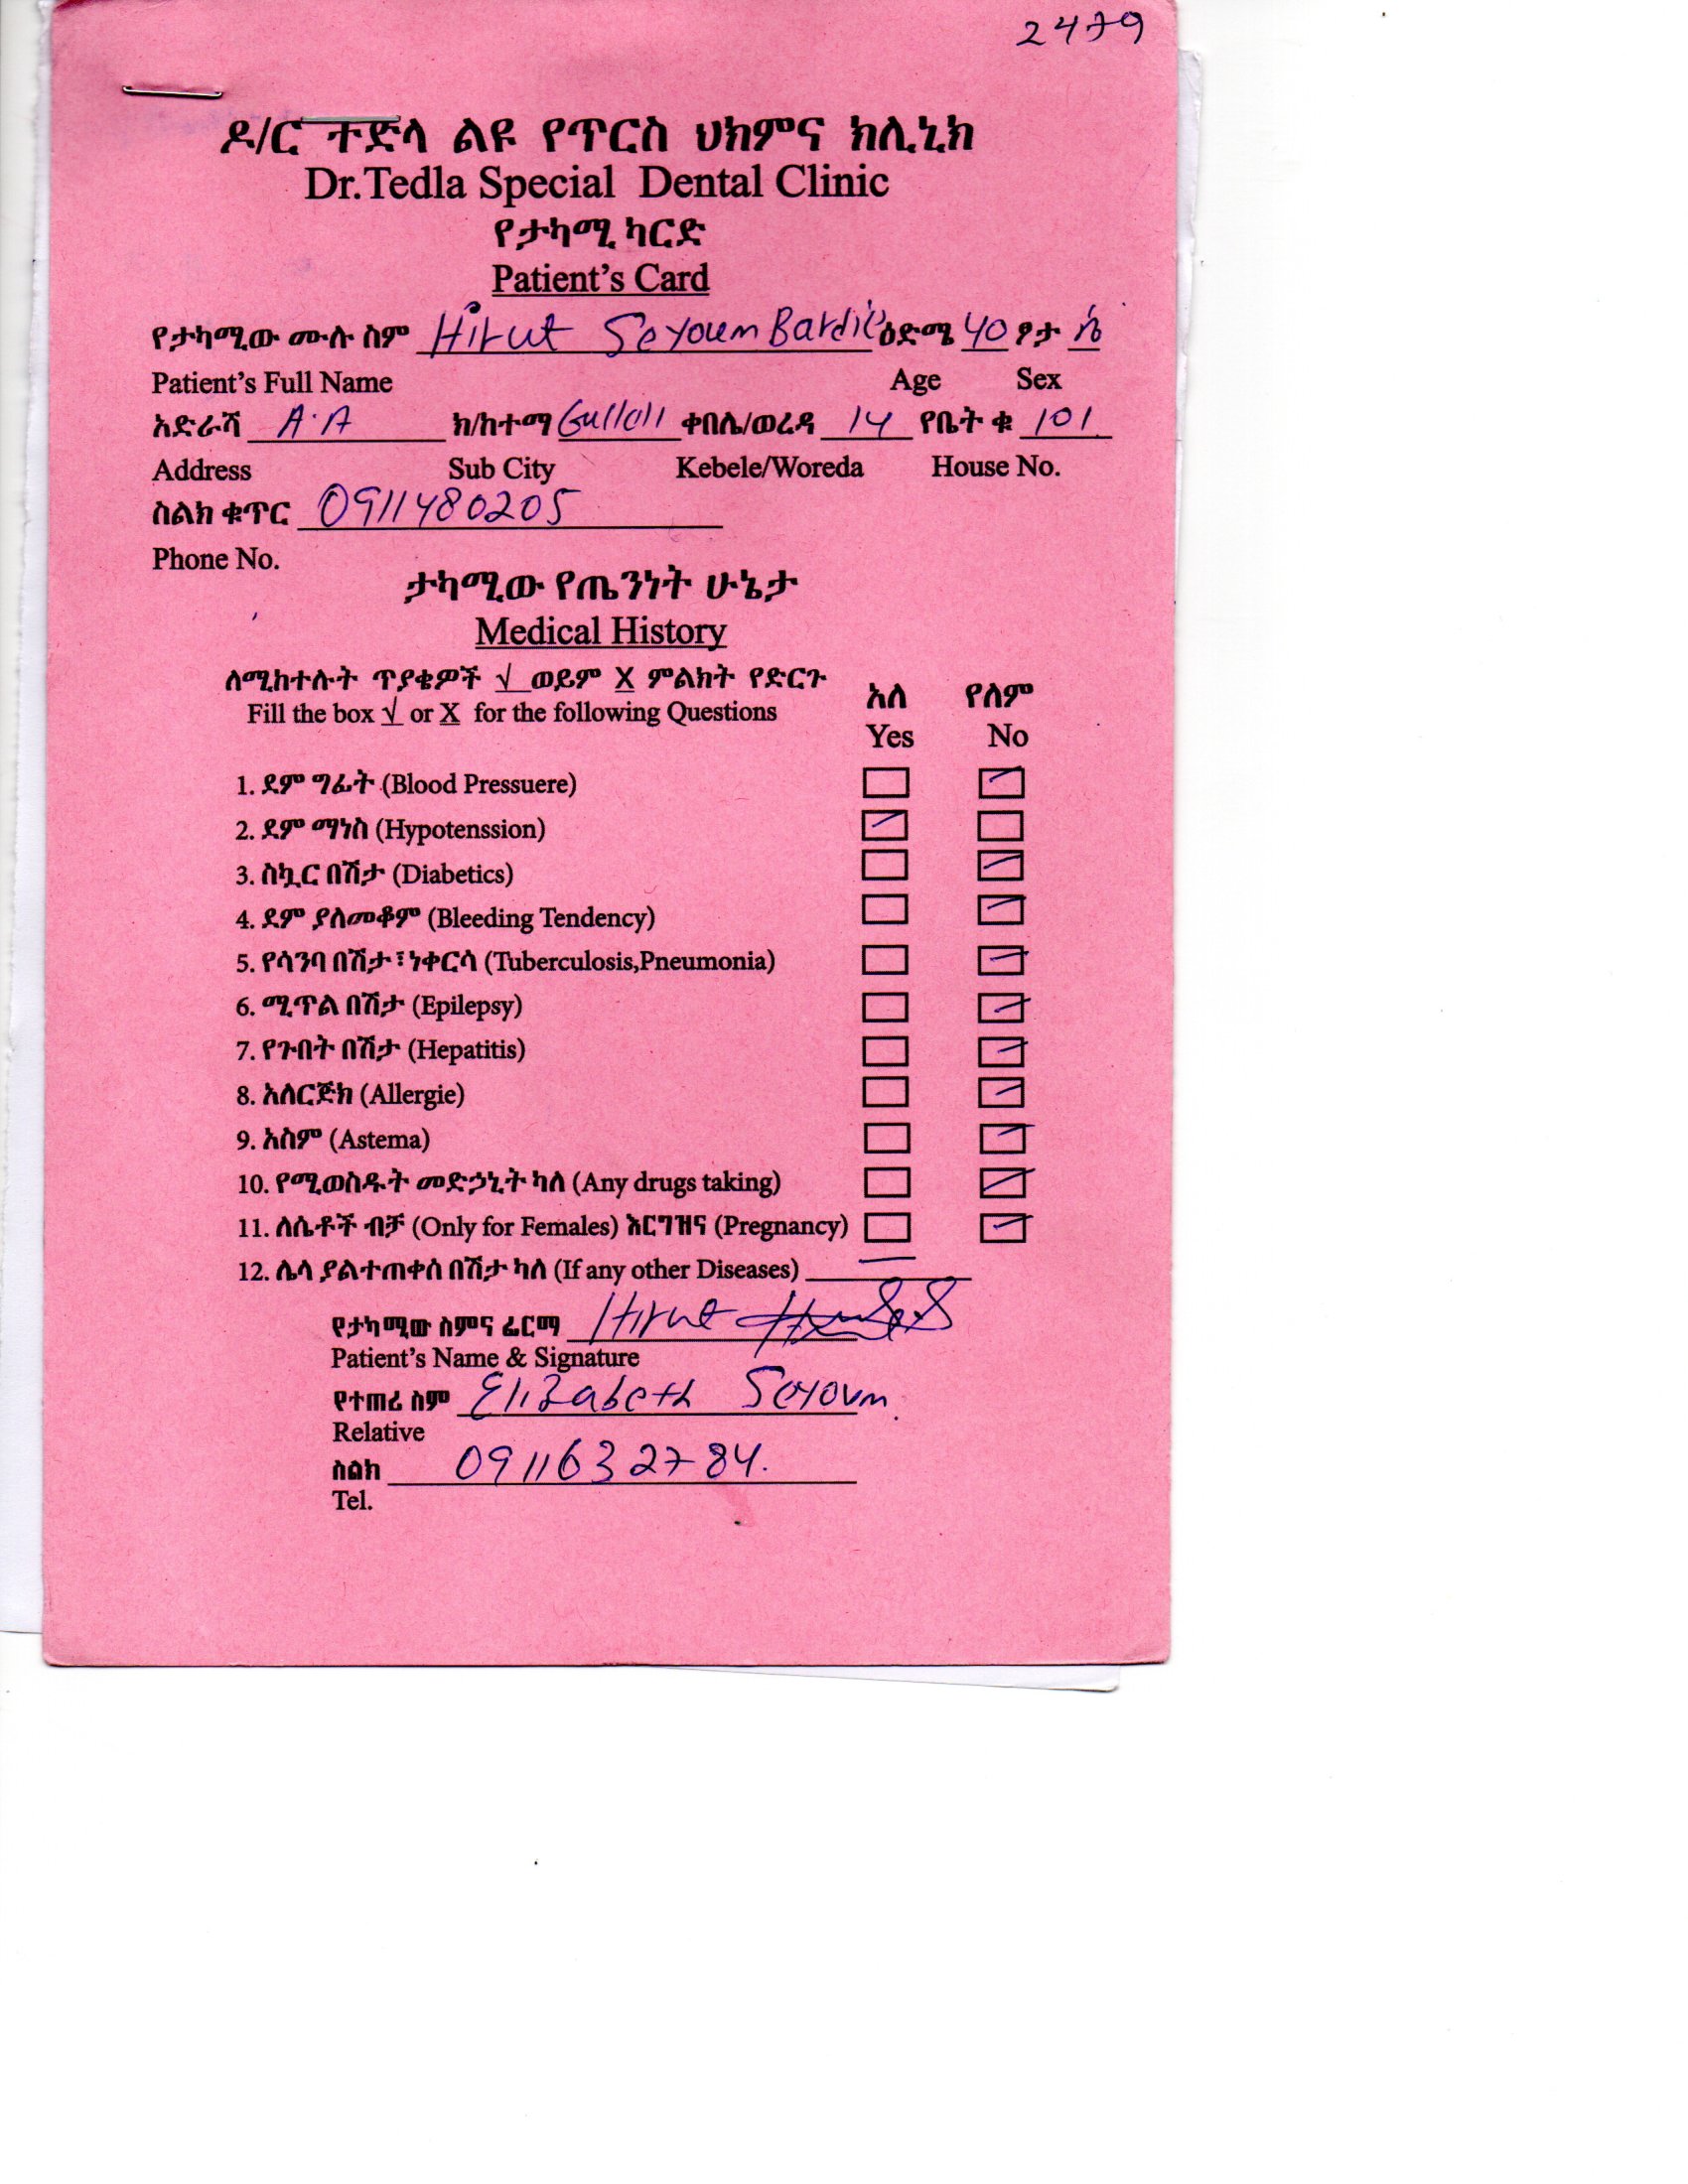 2479
ዶ/ር ተድላ ልዩ የጥርስ ህክምና ክሊኒክ
Dr.Tedla Special Dental Clinic
የታካሚ ካርድ
Patient's Card
የታካሚው ሙሉ ስም Hirut Seyoum ዕድሜ 40 ፆታ ሴ
Patient's Full Name Age Sex
አድራሻ A.A ክ/ከተማ ቀበሌ/ወረዳ 14 የቤት ቁ 101
Address Sub City Kebele/Woreda House No.
ስልክ ቁጥር 0911480205
Phone No.
ታካሚው የጤንነት ሁኔታ
Medical History
ለሚከተሉት ጥያቄዎች √ ወይም X ምልክት የድርጉ
Fill the box √ or X for the following Questions
አለ የለም
Yes No
1. ደም ግፊት (Blood Pressuere)
2. ደም ማነስ (Hypotenssion)
3. ስኳር በሽታ (Diabetics)
4. ደም ያለመቆም (Bleeding Tendency)
5. የሳንባ በሽታ፣ነቀርሳ (Tuberculosis,Pneumonia)
6. ሚጥል በሽታ (Epilepsy)
7. የጉበት በሽታ (Hepatitis)
8. አለርጅክ (Allergie)
9. አስም (Astema)
10. የሚወስዱት መድኃኒት ካለ (Any drugs taking)
11. ለሴቶች ብቻ (Only for Females) እርግዝና (Pregnancy)
12. ሌላ ያልተጠቀሰ በሽታ ካለ (If any other Diseases)
የታካሚው ስምና ፊርማ Hirut
Patient's Name & Signature
የተጠሪ ስም Elizabeth Seyoum
Relative
ስልክ 0911632784.
Tel.